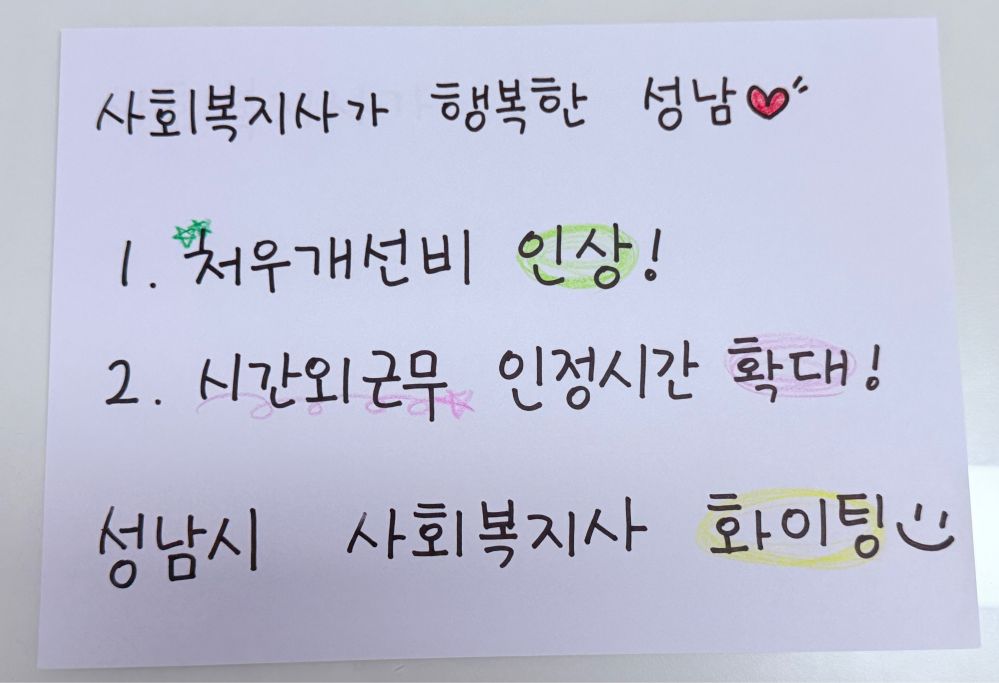 사회복지사가 행복한 성남
1. 처우개선비 인상!
2. 시간외근무 인정시간 확대!
성남시 사회복지사 화이팅